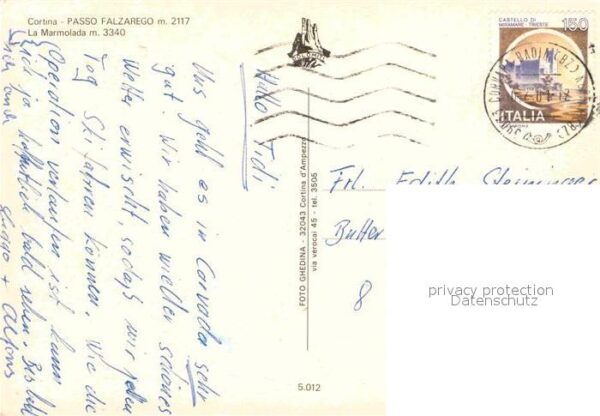 Cortina - PASSO FALZAREGO m. 2117
La Marmolada m. 3340
Hallo Tidi
Uns geht es in Corvada sehr
gut. Wir haben wieder schönes
Wetter erwischt, sodaß wir jeden
Tag Ski fahren können. Wie die
Operation verlaufen ist kann
ich ja hoffentlich bald sehen. Bis bald
+ Alfons
FOTO GHEDINA - 32043 Cortina d'Ampezzo
via verocai 45 - tel. 3505
5.012
CASTELLO DI
MIRAMARE - TRIESTE
150
ITALIA
Frl. Edith
8
privacy protection
Datenschutz